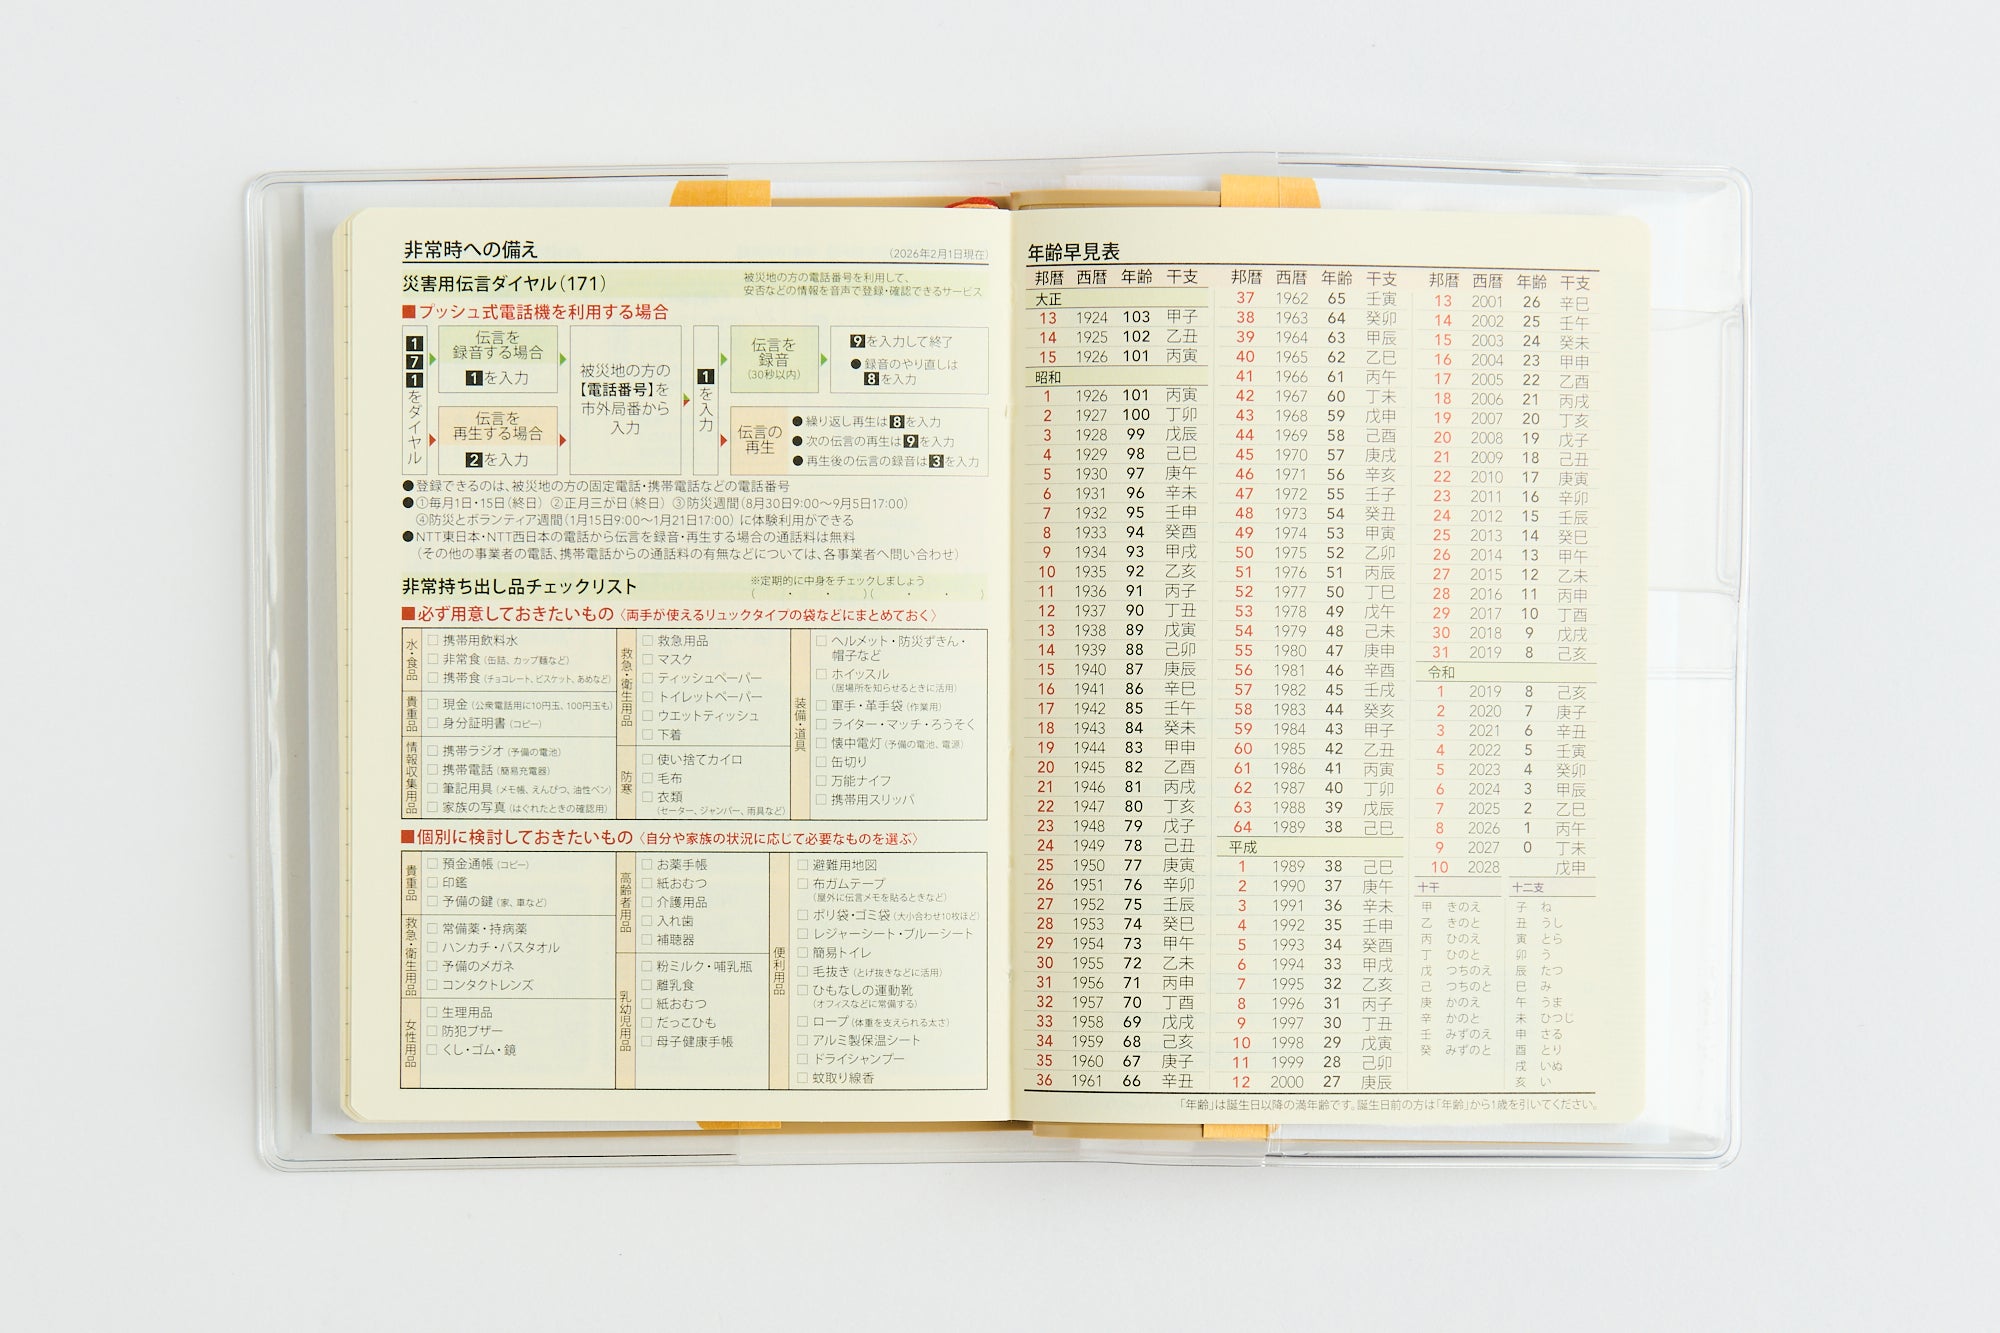 非常時への備え
(2026年2月1日現在)
災害用伝言ダイヤル(171)
被災地の方の電話番号を利用して、
安否などの情報を音声で登録・確認できるサービス
■プッシュ式電話機を利用する場合
171をダイヤル
伝言を
録音する場合
1を入力
伝言を
再生する場合
2を入力
被災地の方の
【電話番号】を
市外局番から
入力
1を入力
伝言を
録音
(30秒以内)
9を入力して終了
●録音のやり直しは
8を入力
伝言の
再生
●繰り返し再生は8を入力
●次の伝言の再生は9を入力
●再生後の伝言の録音は3を入力
●登録できるのは、被災地の方の固定電話・携帯電話などの電話番号
●①毎月1日・15日(終日) ②正月三が日(終日) ③防災週間(8月30日9:00〜9月5日17:00)
④防災とボランティア週間(1月15日9:00〜1月21日17:00) に体験利用ができる
●NTT東日本・NTT西日本の電話から伝言を録音・再生する場合の通話料は無料
(その他の事業者の電話、携帯電話からの通話料の有無などについては、各事業者へ問い合わせ)
非常持ち出し品チェックリスト
※定期的に中身をチェックしましょう
( ・ ・ )( ・ ・ )
■必ず用意しておきたいもの〈両手が使えるリュックタイプの袋などにまとめておく〉
水・食品
□携帯用飲料水
□非常食(缶詰、カップ麺など)
□携帯食(チョコレート、ビスケット、あめなど)
貴重品
□現金(公衆電話用に10円玉、100円玉も)
□身分証明書(コピー)
情報収集用品
□携帯ラジオ(予備の電池)
□携帯電話(簡易充電器)
□筆記用具(メモ帳、えんぴつ、油性ペン)
□家族の写真(はぐれたときの確認用)
救急・衛生用品
□救急用品
□マスク
□ティッシュペーパー
□トイレットペーパー
□ウエットティッシュ
□下着
防寒
□使い捨てカイロ
□毛布
□衣類
(セーター、ジャンパー、雨具など)
装備・道具
□ヘルメット・防災ずきん・
帽子など
□ホイッスル
(居場所を知らせるときに活用)
□軍手・革手袋(作業用)
□ライター・マッチ・ろうそく
□懐中電灯(予備の電池、電源)
□缶切り
□万能ナイフ
□携帯用スリッパ
■個別に検討しておきたいもの〈自分や家族の状況に応じて必要なものを選ぶ〉
貴重品
□預金通帳(コピー)
□印鑑
□予備の鍵(家、車など)
救急・衛生用品
□常備薬・持病薬
□ハンカチ・バスタオル
□予備のメガネ
□コンタクトレンズ
女性用品
□生理用品
□防犯ブザー
□くし・ゴム・鏡
高齢者用品
□お薬手帳
□紙おむつ
□介護用品
□入れ歯
□補聴器
乳幼児用品
□粉ミルク・哺乳瓶
□離乳食
□紙おむつ
□だっこひも
□母子健康手帳
便利用品
□避難用地図
□布ガムテープ
(屋外に伝言メモを貼るときなど)
□ポリ袋・ゴミ袋(大小合わせ10枚ほど)
□レジャーシート・ブルーシート
□簡易トイレ
□毛抜き(とげ抜きなどに活用)
□ひもなしの運動靴
(オフィスなどに常備する)
□ロープ(体重を支えられる太さ)
□アルミ製保温シート
□ドライシャンプー
□蚊取り線香
年齢早見表
邦暦 西暦 年齢 干支
大正
13 1924 103 甲子
14 1925 102 乙丑
15 1926 101 丙寅
昭和
1 1926 101 丙寅
2 1927 100 丁卯
3 1928 99 戊辰
4 1929 98 己巳
5 1930 97 庚午
6 1931 96 辛未
7 1932 95 壬申
8 1933 94 癸酉
9 1934 93 甲戌
10 1935 92 乙亥
11 1936 91 丙子
12 1937 90 丁丑
13 1938 89 戊寅
14 1939 88 己卯
15 1940 87 庚辰
16 1941 86 辛巳
17 1942 85 壬午
18 1943 84 癸未
19 1944 83 甲申
20 1945 82 乙酉
21 1946 81 丙戌
22 1947 80 丁亥
23 1948 79 戊子
24 1949 78 己丑
25 1950 77 庚寅
26 1951 76 辛卯
27 1952 75 壬辰
28 1953 74 癸巳
29 1954 73 甲午
30 1955 72 乙未
31 1956 71 丙申
32 1957 70 丁酉
33 1958 69 戊戌
34 1959 68 己亥
35 1960 67 庚子
36 1961 66 辛丑
邦暦 西暦 年齢 干支
37 1962 65 壬寅
38 1963 64 癸卯
39 1964 63 甲辰
40 1965 62 乙巳
41 1966 61 丙午
42 1967 60 丁未
43 1968 59 戊申
44 1969 58 己酉
45 1970 57 庚戌
46 1971 56 辛亥
47 1972 55 壬子
48 1973 54 癸丑
49 1974 53 甲寅
50 1975 52 乙卯
51 1976 51 丙辰
52 1977 50 丁巳
53 1978 49 戊午
54 1979 48 己未
55 1980 47 庚申
56 1981 46 辛酉
57 1982 45 壬戌
58 1983 44 癸亥
59 1984 43 甲子
60 1985 42 乙丑
61 1986 41 丙寅
62 1987 40 丁卯
63 1988 39 戊辰
64 1989 38 己巳
平成
1 1989 38 己巳
2 1990 37 庚午
3 1991 36 辛未
4 1992 35 壬申
5 1993 34 癸酉
6 1994 33 甲戌
7 1995 32 乙亥
8 1996 31 丙子
9 1997 30 丁丑
10 1998 29 戊寅
11 1999 28 己卯
12 2000 27 庚辰
邦暦 西暦 年齢 干支
13 2001 26 辛巳
14 2002 25 壬午
15 2003 24 癸未
16 2004 23 甲申
17 2005 22 乙酉
18 2006 21 丙戌
19 2007 20 丁亥
20 2008 19 戊子
21 2009 18 己丑
22 2010 17 庚寅
23 2011 16 辛卯
24 2012 15 壬辰
25 2013 14 癸巳
26 2014 13 甲午
27 2015 12 乙未
28 2016 11 丙申
29 2017 10 丁酉
30 2018 9 戊戌
31 2019 8 己亥
令和
1 2019 8 己亥
2 2020 7 庚子
3 2021 6 辛丑
4 2022 5 壬寅
5 2023 4 癸卯
6 2024 3 甲辰
7 2025 2 乙巳
8 2026 1 丙午
9 2027 0 丁未
10 2028 戊申
十干
甲 きのえ
乙 きのと
丙 ひのえ
丁 ひのと
戊 つちのえ
己 つちのと
庚 かのえ
辛 かのと
壬 みずのえ
癸 みずのと
十二支
子 ね
丑 うし
寅 とら
卯 う
辰 たつ
巳 み
午 うま
未 ひつじ
申 さる
酉 とり
戌 いぬ
亥 い
「年齢」は誕生日以降の満年齢です。誕生日前の方は「年齢」から1歳を引いてください。